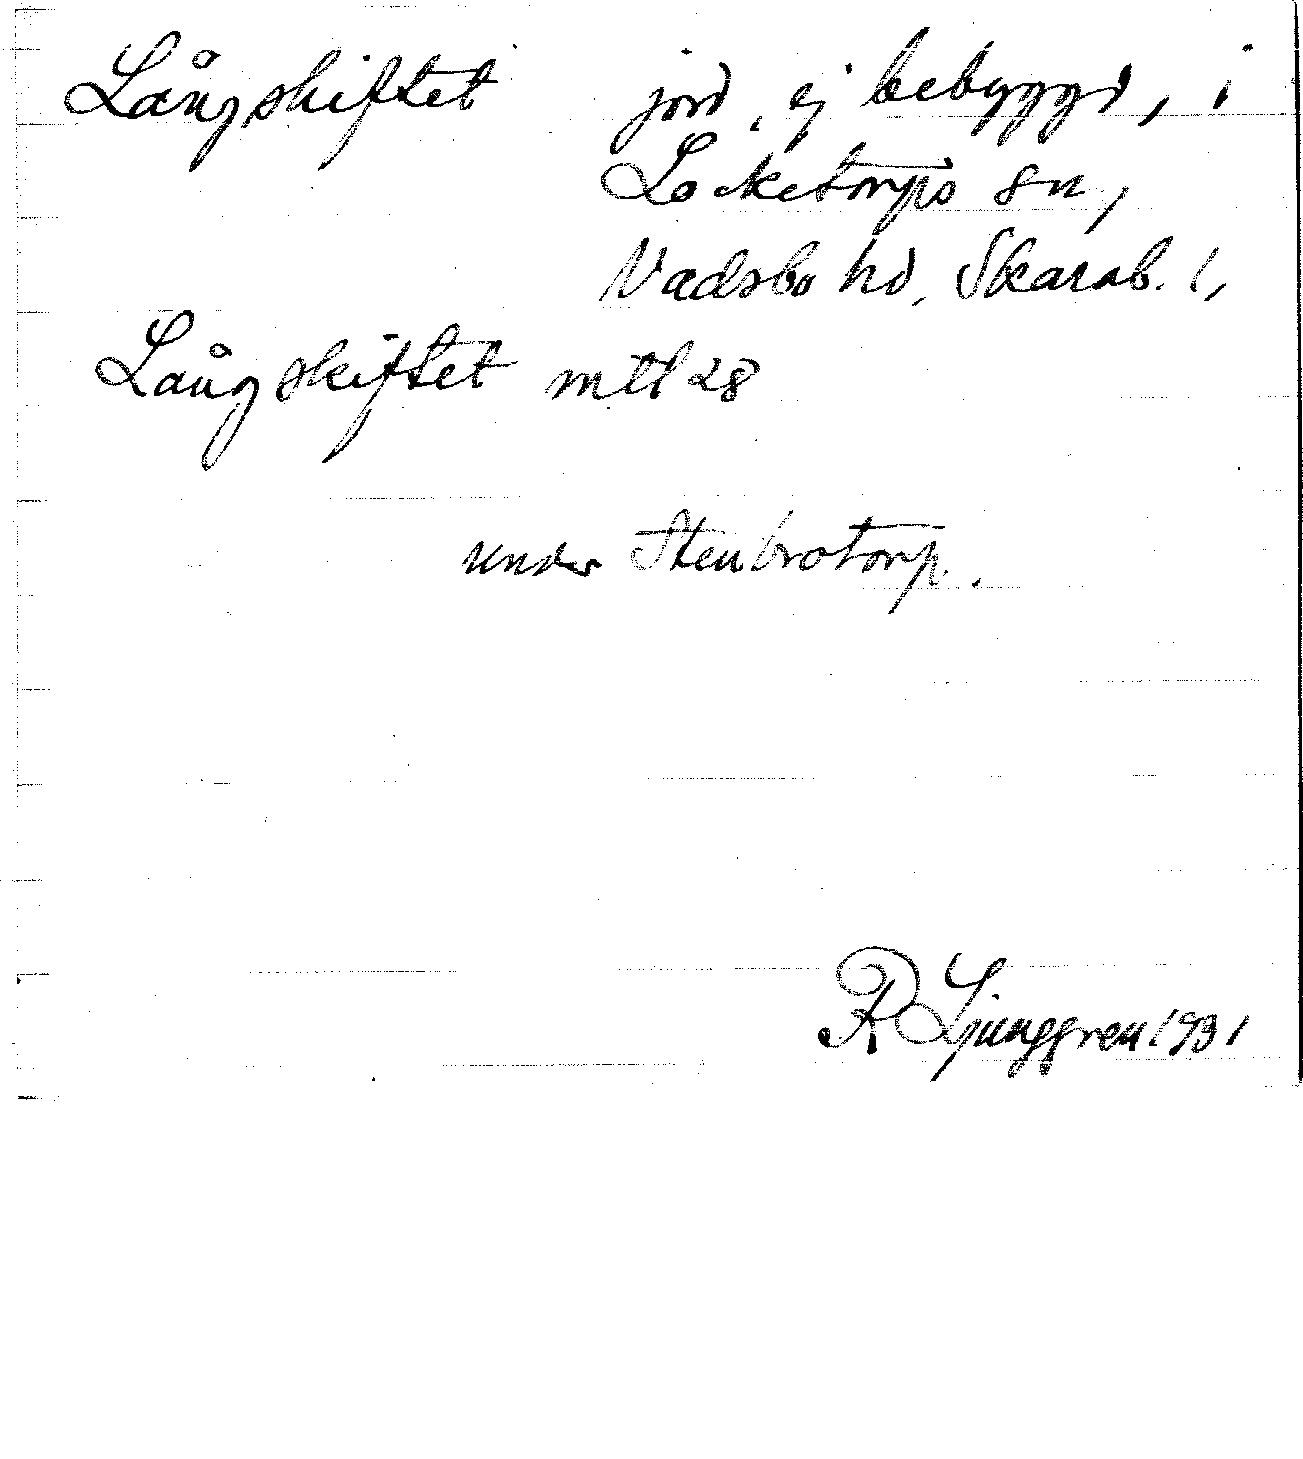 Långskiftet jord, ej bebyggd, i
Locketorps sn,
Vadsbo hd, Skarab. l,
Långskiftet mtl 28
under Stenbrotorp.
R Ljunggren 1931